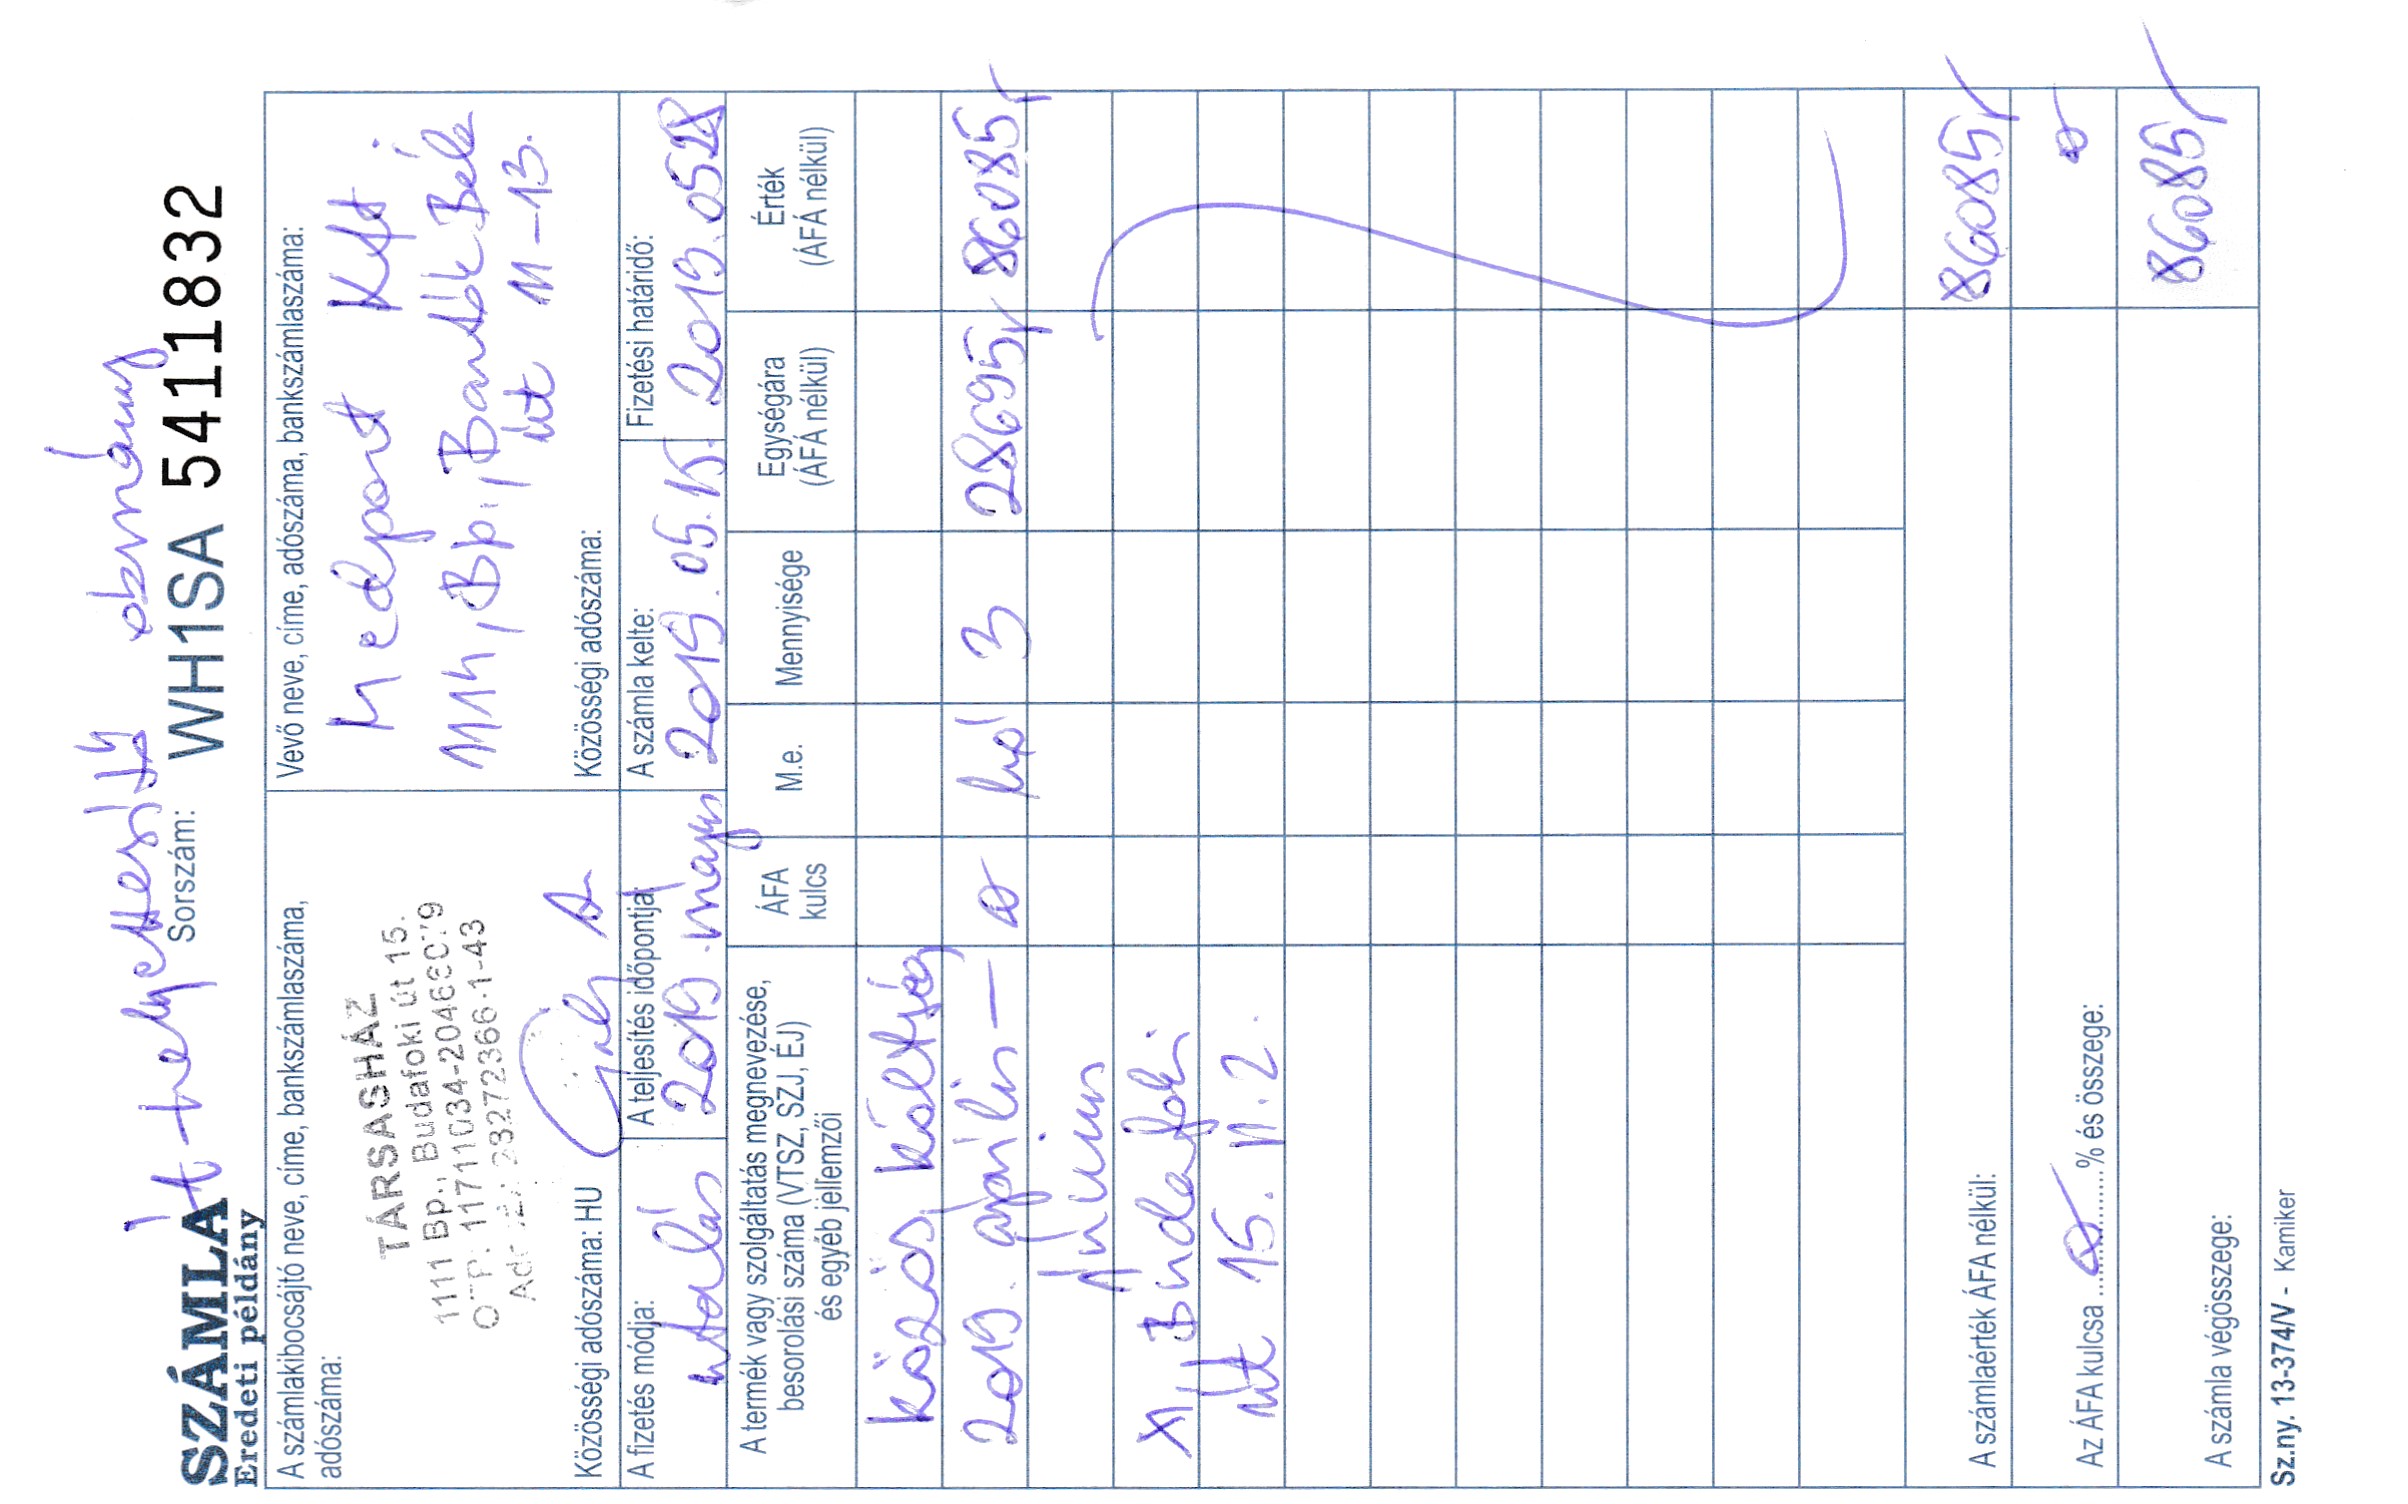 SZÁMLÁT helyettesítő okmány
Eredeti példány
Sorszám: WH1SA 5411832
A számlakibocsájtó neve, címe, bankszámlaszáma,
adószáma:
TÁRSASHÁZ
1111 Bp., Budafoki út 15.
Közösségi adószáma: HU
Vevő neve, címe, adószáma, bankszámlaszáma:
Medport Kft.
1114, Bp., Bartók Béla
út 11-13.
Közösségi adószáma:
A fizetés módja:
utalás
A teljesítés időpontja:
2019. május
A számla kelte:
2019.05.15.
Fizetési határidő:
2019.0528
A termék vagy szolgáltatás megnevezése,
besorolási száma (VTSZ, SZJ, ÉJ)
és egyéb jellemzői
ÁFA
kulcs
M.e.
Mennyisége
Egységára
(ÁFÁ nélkül)
Érték
(ÁFÁ nélkül)
Közös költség
2019. április – 0 hó 3 28695,- 86085,-
június
XI., Budafoki
út 15. II. 2.
A számlaérték ÁFA nélkül: 86085,-
Az ÁFA kulcsa 0 % és összege: 0
A számla végösszege: 86085,-
Sz.ny. 13-374/V - Kamiker